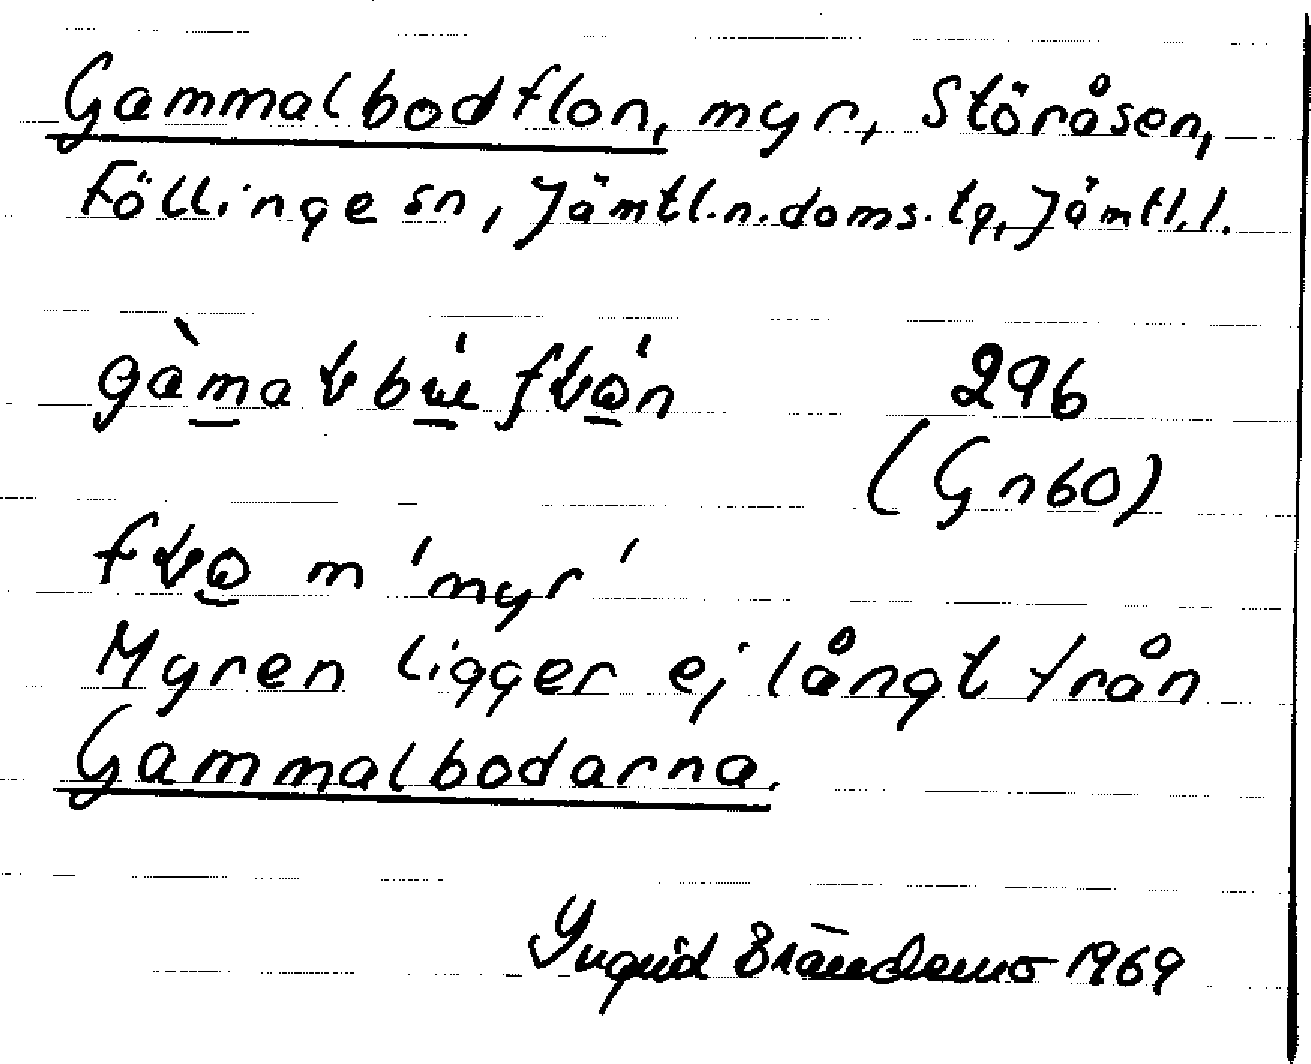 Gammalbodflon, myr, Störåsen,
Föllinge sn, Jämtl.n.doms.tg, Jämtl.l.
296
(Gn60)
m 'myr'
Myren ligger ej långt från
Gammalbodarna.
Ingrid Brändemo 1969